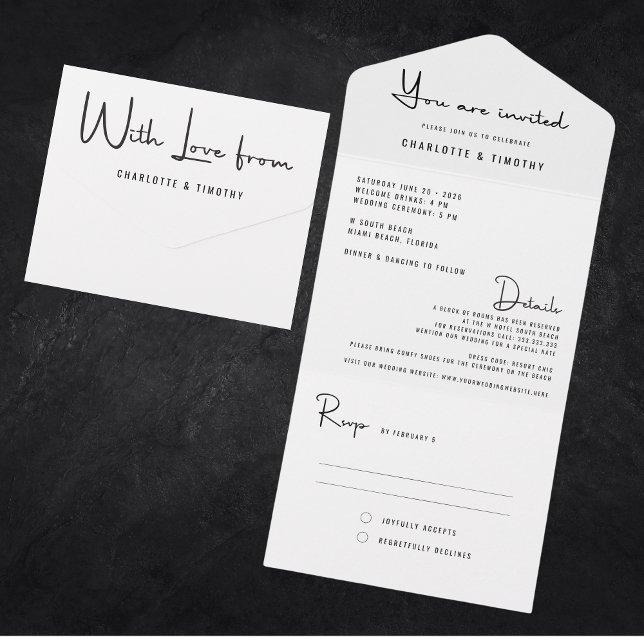 With Love from
CHARLOTTE & TIMOTHY
You are invited
PLEASE JOIN US TO CELEBRATE
CHARLOTTE & TIMOTHY
SATURDAY JUNE 20 • 2026
WELCOME DRINKS: 4 PM
WEDDING CEREMONY: 5 PM
W SOUTH BEACH
MIAMI BEACH, FLORIDA
DINNER & DANCING TO FOLLOW
Details
A BLOCK OF ROOMS HAS BEEN RESERVED
AT THE W HOTEL SOUTH BEACH
FOR RESERVATIONS CALL: 333.333.333
MENTION OUR WEDDING FOR A SPECIAL RATE
DRESS CODE: RESORT CHIC
PLEASE BRING COMFY SHOES FOR THE CEREMONY ON THE BEACH
VISIT OUR WEDDING WEBSITE: WWW.YOURWEDDINGWEBSITE.HERE
Rsvp BY FEBRUARY 5
JOYFULLY ACCEPTS
REGRETFULLY DECLINES